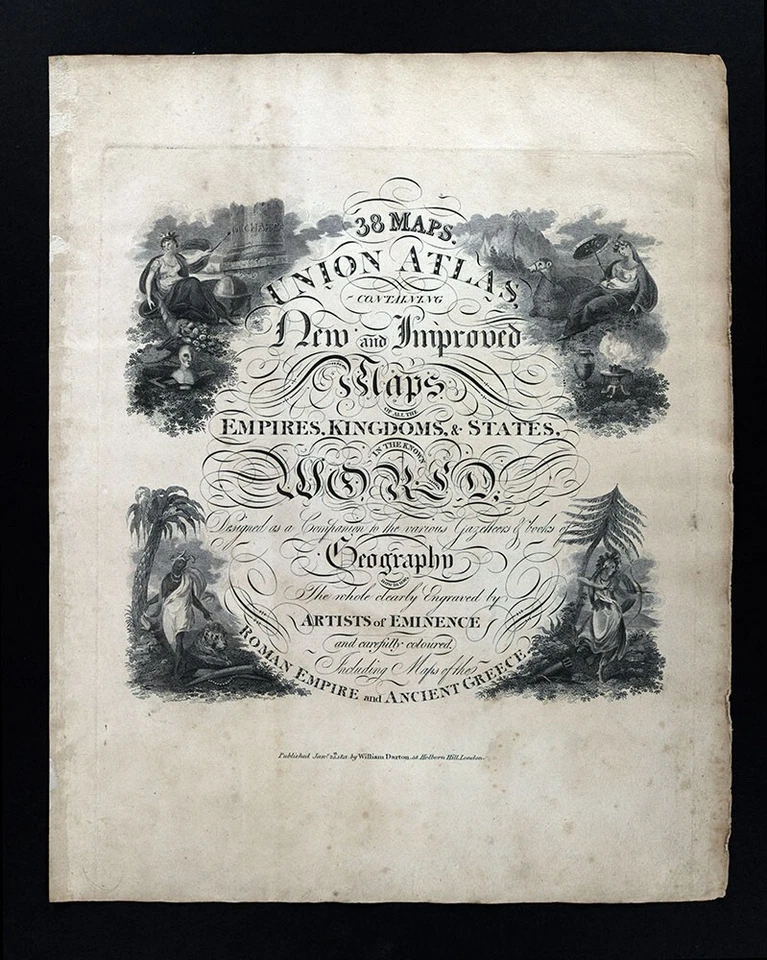 38 MAPS.
UNION ATLAS,
CONTAINING
New and Improved
Maps
OF ALL THE
EMPIRES, KINGDOMS, & STATES,
IN THE KNOWN
WORLD,
Designed as a Companion to the various Gazetteers & books of
Geography
The whole clearly Engraved by
ARTISTS of EMINENCE
and carefully coloured.
Including Maps of the
ROMAN EMPIRE and ANCIENT GREECE.
Published Jany. by William Darton, at Holborn Hill, London.